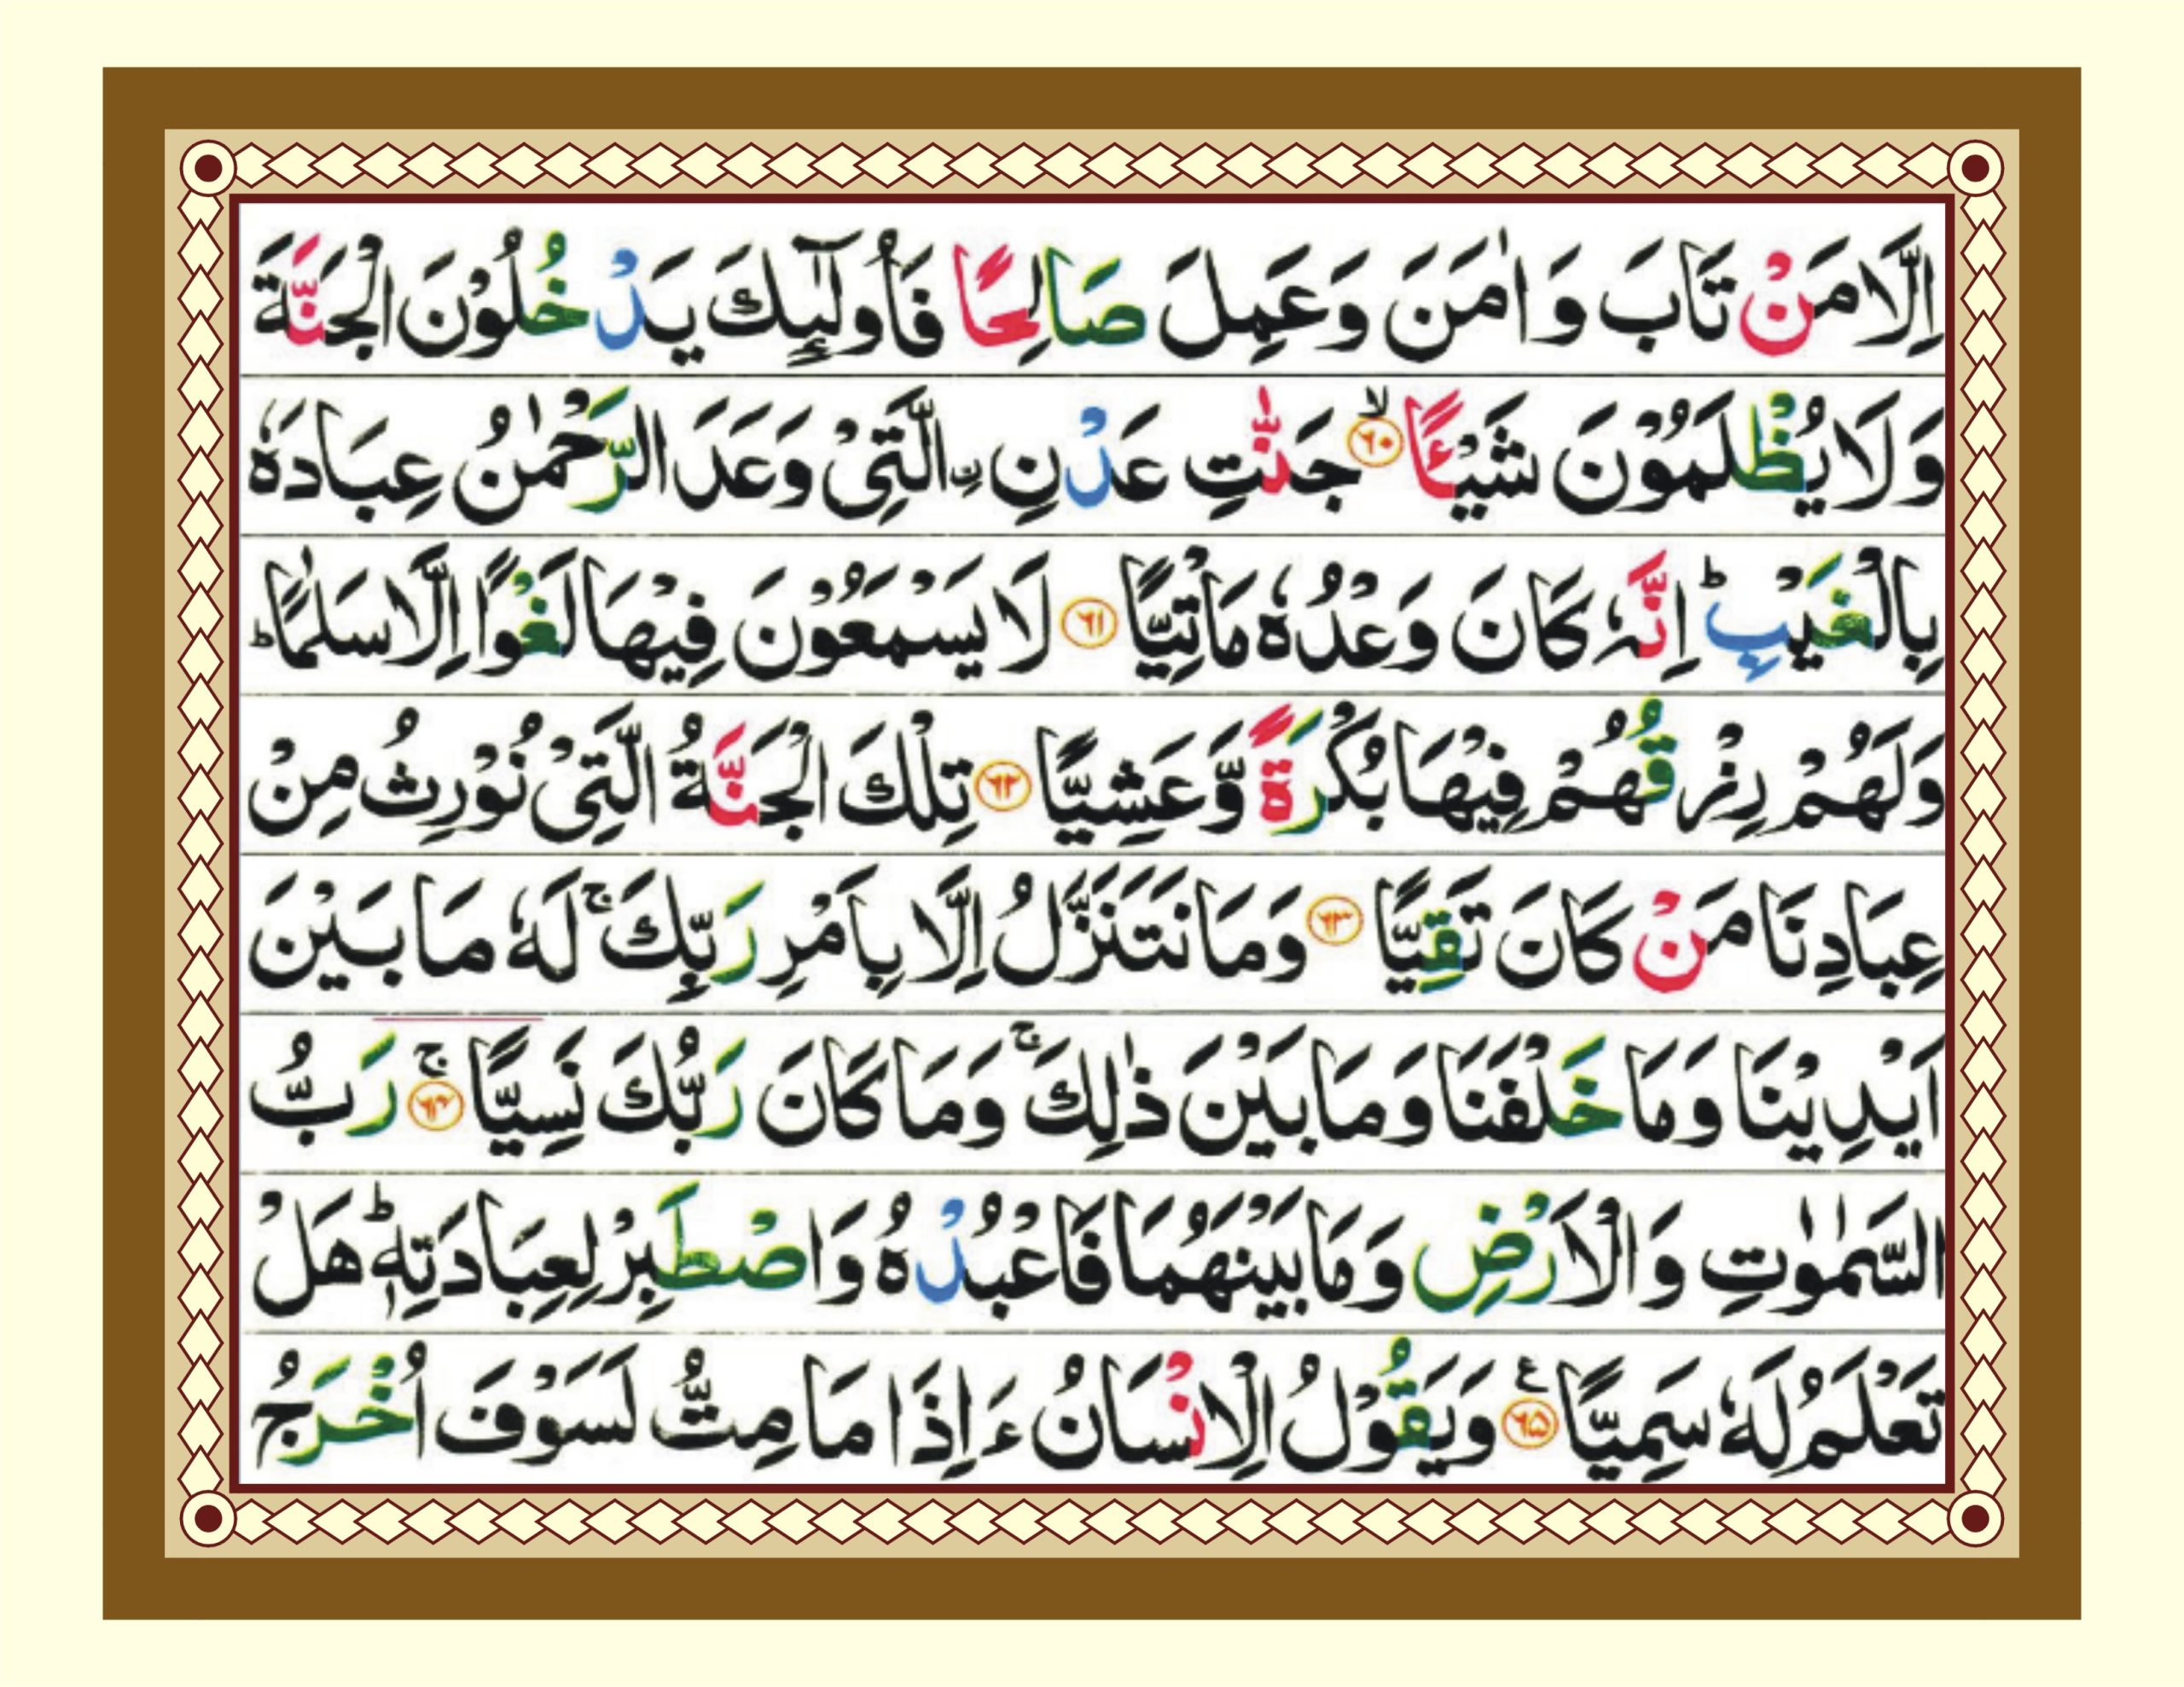 اِلَّا مَنْ تَابَ وَاٰمَنَ وَعَمِلَ صَالِحًا فَاُولٰٓئِكَ يَدْخُلُوْنَ الْجَنَّةَ
وَلَا يُظْلَمُوْنَ شَيْـًٔا ۙ﴿۶۰﴾ جَنّٰتِ عَدْنِ ۨالَّتِيْ وَعَدَ الرَّحْمٰنُ عِبَادَهٗ
بِالْغَيْبِ ؕ اِنَّهٗ كَانَ وَعْدُهٗ مَاْتِيًّا ﴿۶۱﴾ لَا يَسْمَعُوْنَ فِيْهَا لَغْوًا اِلَّا سَلٰمًا ؕ
وَلَهُمْ رِزْقُهُمْ فِيْهَا بُكْرَةً وَّعَشِيًّا ﴿۶۲﴾ تِلْكَ الْجَنَّةُ الَّتِيْ نُوْرِثُ مِنْ
عِبَادِنَا مَنْ كَانَ تَقِيًّا ﴿۶۳﴾ وَمَا نَتَنَزَّلُ اِلَّا بِاَمْرِ رَبِّكَ ۚ لَهٗ مَا بَيْنَ
اَيْدِيْنَا وَمَا خَلْفَنَا وَمَا بَيْنَ ذٰلِكَ ۚ وَمَا كَانَ رَبُّكَ نَسِيًّا ۚ﴿۶۴﴾ رَبُّ
السَّمٰوٰتِ وَالْاَرْضِ وَمَا بَيْنَهُمَا فَاعْبُدْهُ وَاصْطَبِرْ لِعِبَادَتِهٖ ؕ هَلْ
تَعْلَمُ لَهٗ سَمِيًّا ﴿۶۵﴾ ع وَيَقُوْلُ الْاِنْسَانُ ءَاِذَا مَا مِتُّ لَسَوْفَ اُخْرَجُ